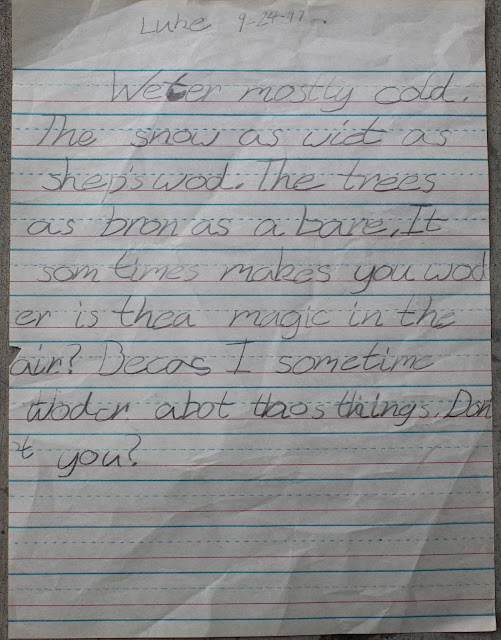 Luke 9-24-97.
Weter mostly cold.
The snow as wiet as
shep's wod. The trees
as bron as a bare, It
som times makes you wod
er is thea magic in the
air? Becas I sometime
woder abot thaos things. Don
't you?